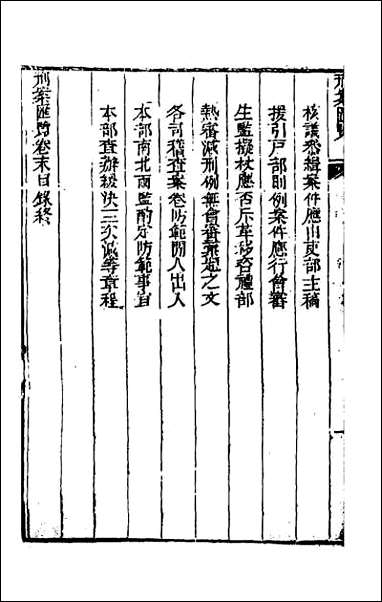 核議恭緝案件應由吏部主稿
援引戶部則例案件應行會審
生監擬杖應否斥革移咨禮部
熱審減刑例無會審兼込之文
各司稽查案卷防範閒人出入
本部南北兩監酌定防範事宜
本部查辦緩決三次減等章程
刑案匯覽卷末目錄終